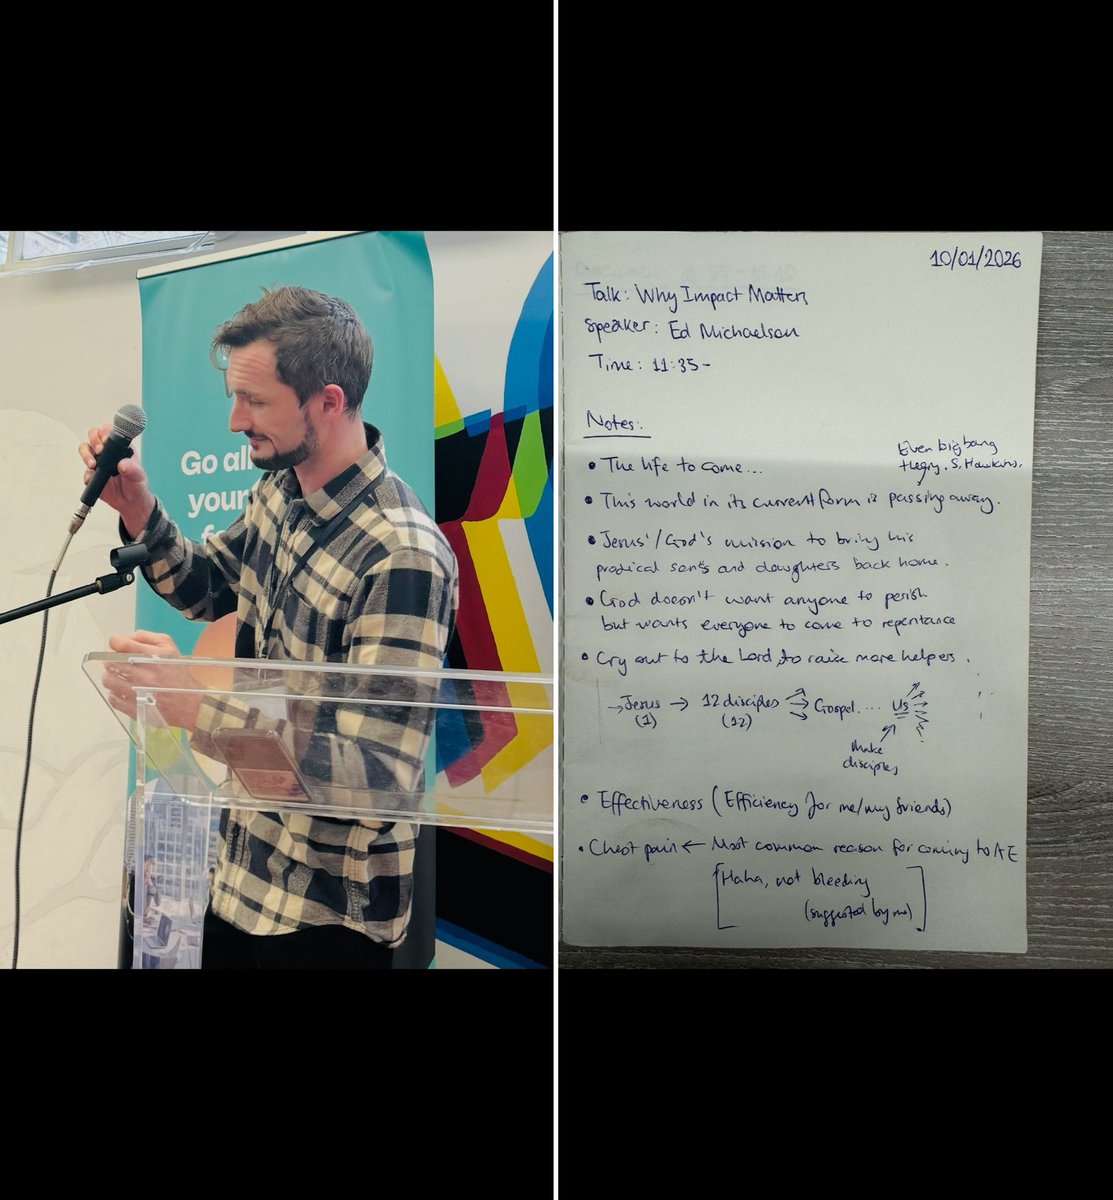 Go all
your
10/01/2026
Talk: Why Impact Matters
Speaker: Ed Michaelson
Time: 11:35-
Notes:
Even big bang
theory, S. Hawkins.
• The life to come...
• This world in its current form is passing away.
• Jesus'/God's mission to bring his
prodical sons and daughters back home.
• God doesn't want anyone to perish
but wants everyone to come to repentance
• Cry out to the Lord, to raise more helpers.
→ Jesus → 12 disciples → Gospel.... Us
(1) (12)
Make
disciples
• Effectiveness (Efficiency for me/my friends)
• Chest pain ← Most common reason for coming to AE
[Haha, not bleeding
(suggested by me)]